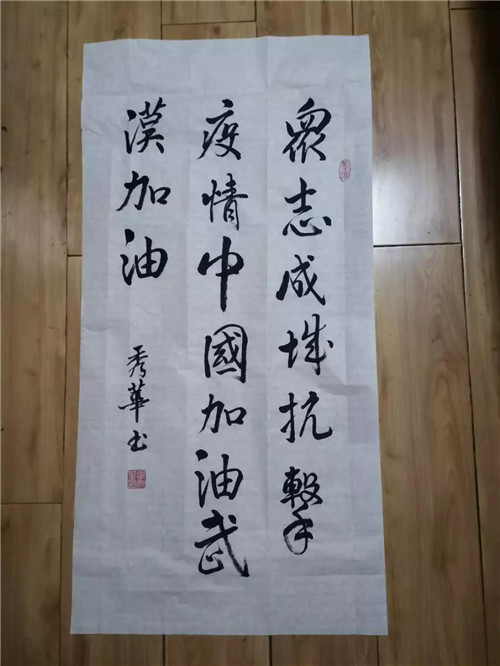 衆志成城抗擊
疫情中國加油武
漠加油
秀華书